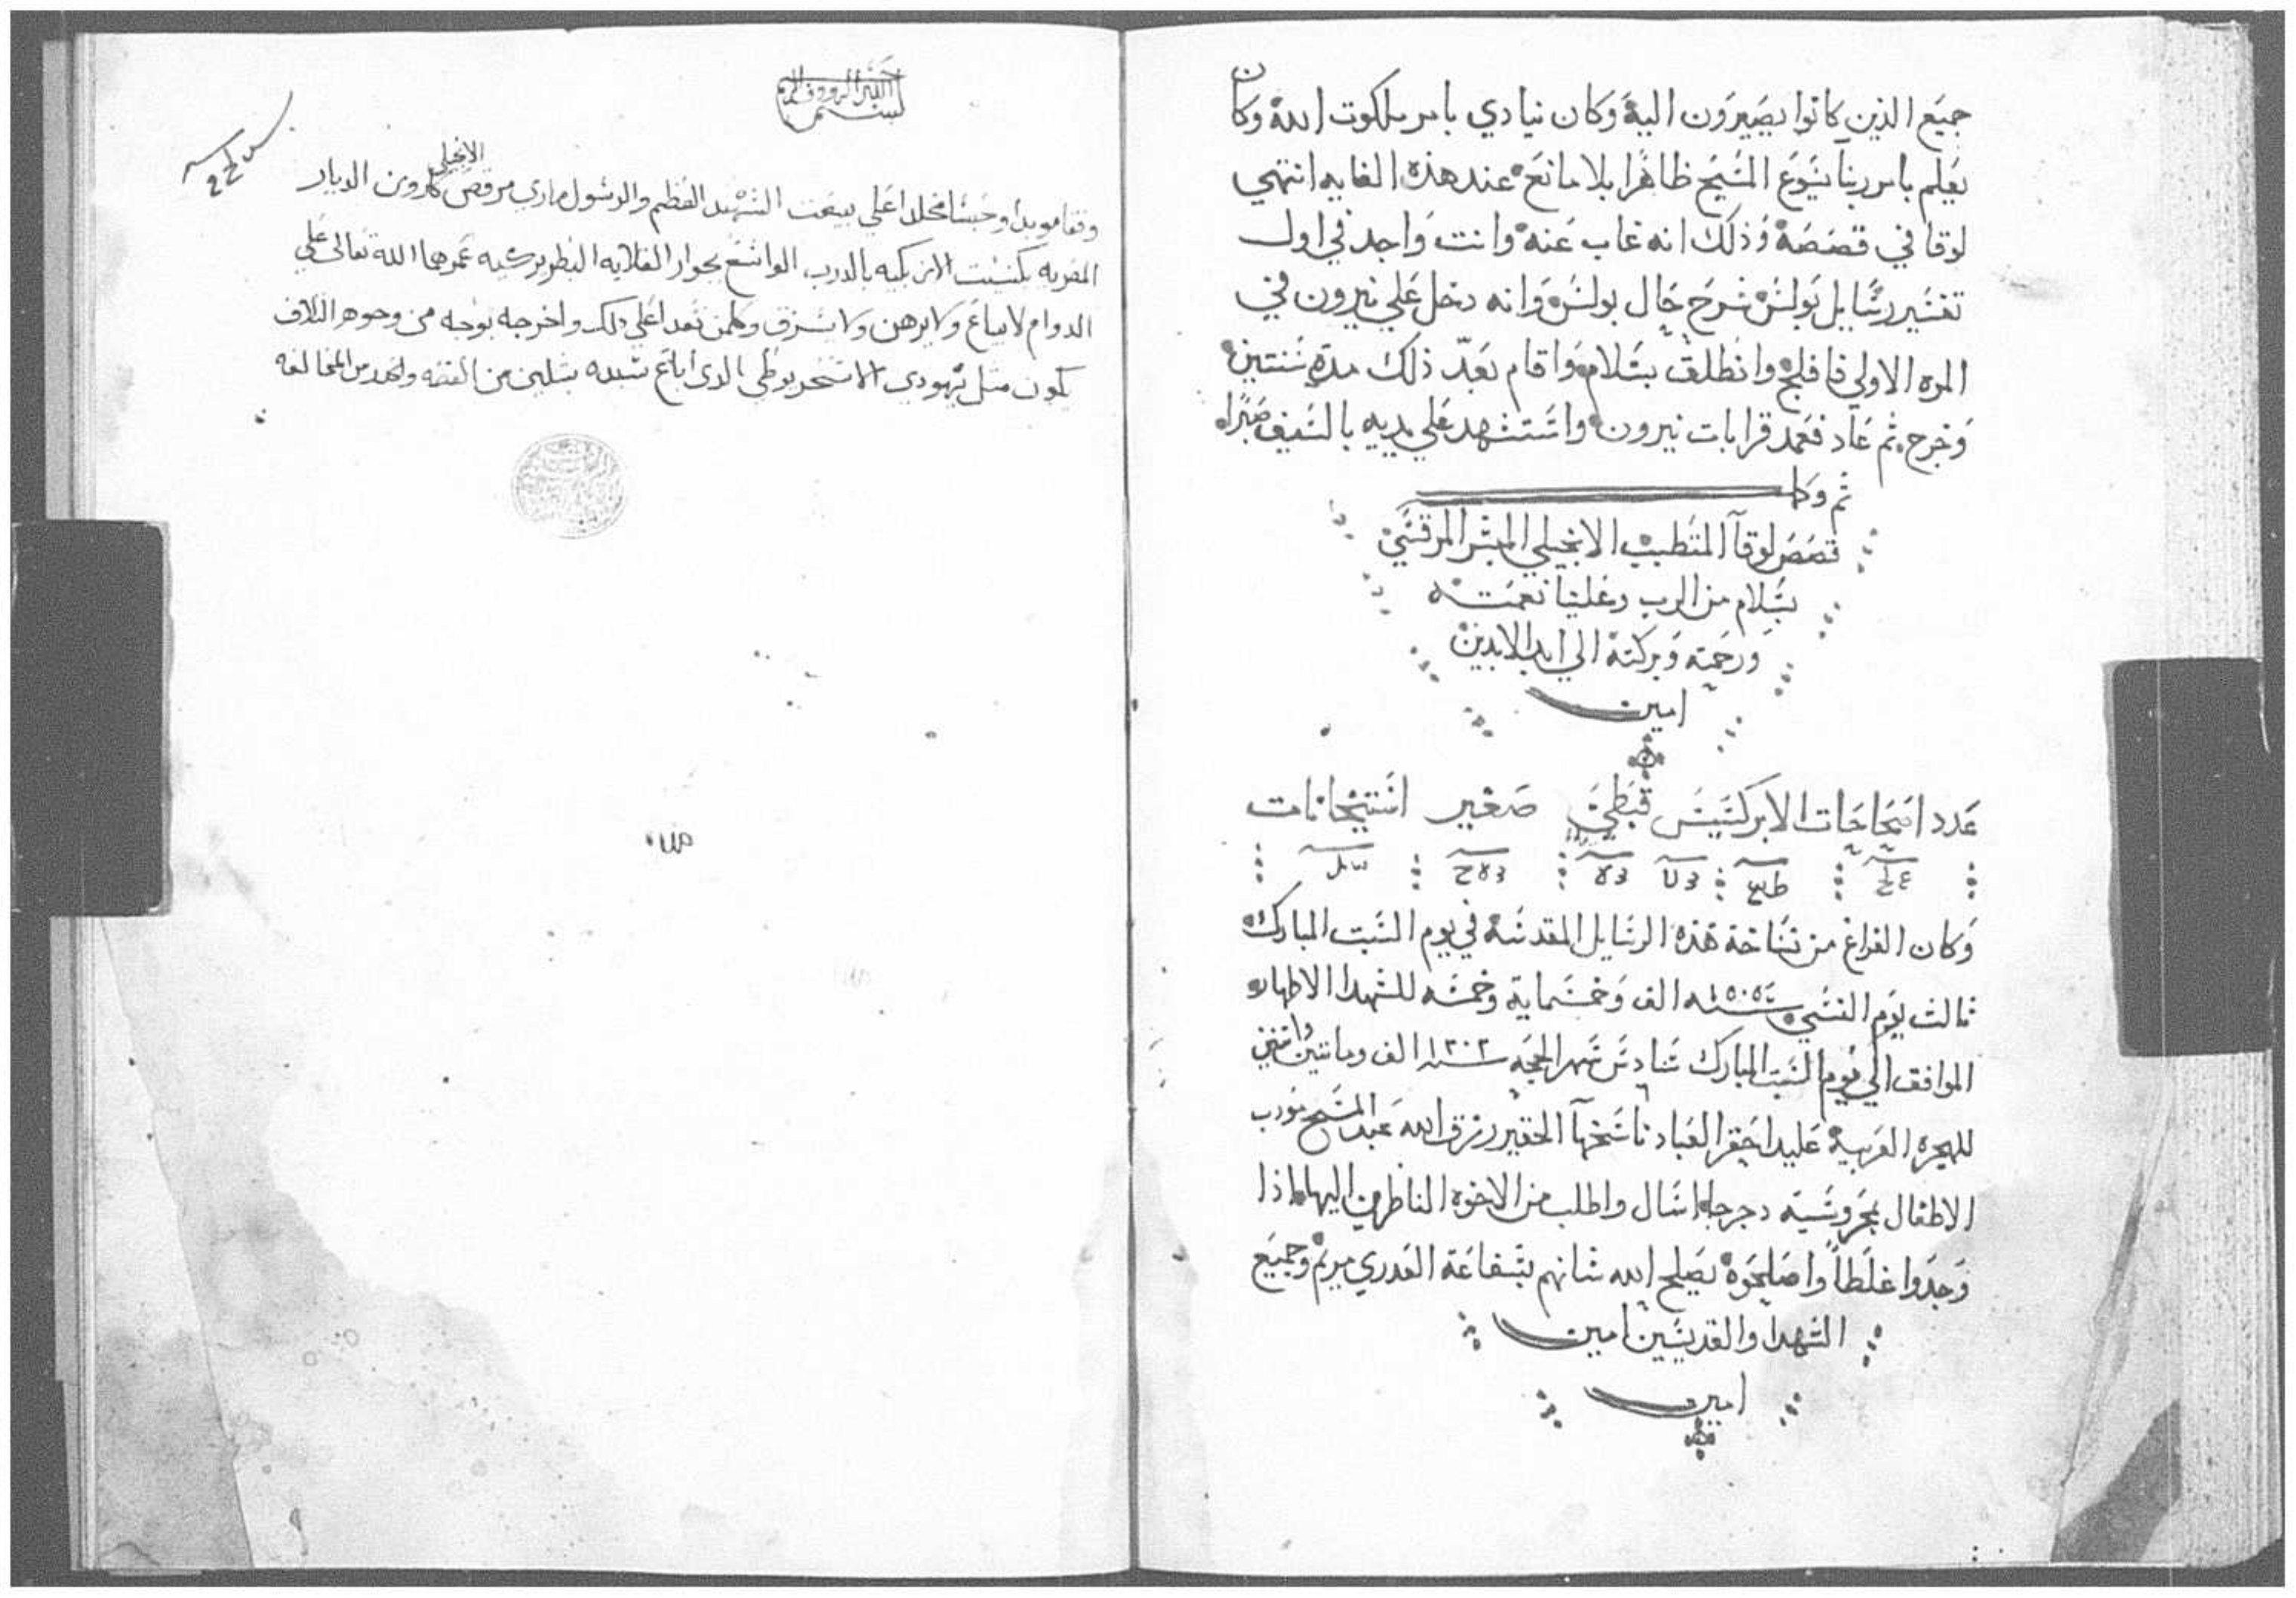 جميع الذين كانوا يصيرون اليه وكان ينادي بامر ملكوت الله وكان
يعلم بامر ربنا يسوع المسيح ظاهرا بلا مانع عند هذه الغايه انتهي
لوقا في قصصه وذلك انه غاب عنه وانت واجد في اول
تفسير رسايل بولس شرح حال بولس وانه دخل علي نيرون في
المره الاولي فافلج وانطلق بسلام واقام بعد ذلك مدة سنتين
وخرج ثم عاد فعمد قرابات نيرون واستشهد علي يديه بالسيف صبرا
تم وكل
قصص لوقا المتطبب الانجيلي المبشر المرقسي
بسلام من الرب وعلينا نعمته
ورحمته وبركته الي ابد الابدين
امين
عدد اصحاحات الابركسيس قبطي صغير استيخانات
وكان الفراغ من نساخة هذه الرسايل المقدسه في يوم السبت المبارك
ثالث يوم النسي سنة ١٥٠٥ الف وخمسماية وخمسه للشهدا الاطهار
الموافق الي يوم السبت المبارك سادس شهر الحجه سنه ١٢٠٣ الف ومايتين
للهجره العربية عليد احقر العباد ناسخها الحقير رزق الله عبد المسيح مودب
الاطفال بمحروسية دجرجا اسال واطلب من الاخوه الناظرين اليها اذا
وجدوا غلطا واصلحوه يصلح الله شانهم بشفاعة العدري مريم وجميع
الشهدا والقديسين امين
امين
بسم الله الرووف
وقفا موبدا وحبسا مخلدا علي بيعت الشهيد العظيم والرسول ماري مرقص الانجيلي كاروين الديار
المصريه بكنيست الازبكيه بالدرب الواسع بجوار القلايه البطريركيه عمرها الله تعالى علي
الدوام لا يباع ولا يرهن ولا يسرق وكلمن تعدا علي ذلك واخرجه بوجه من وجوه التلاف
يكون مثل يهودي الاسخريوطي الذي اباع سيده بثلاثين من الفضه والحدر من المخالفه